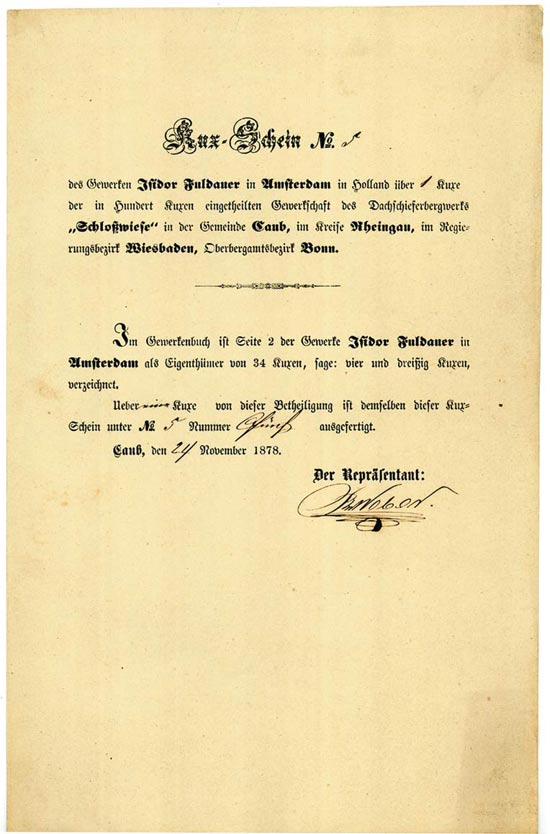 Kux-Schein No. 5
des Gewerken Isidor Fuldauer in Amsterdam in Holland über 1 Kuxe
der in Hundert Kuxen eingetheilten Gewerkschaft des Dachschieferbergwerks
„Schloßwiese“ in der Gemeinde Caub, im Kreise Rheingau, im Regie-
rungsbezirk Wiesbaden, Oberbergamtsbezirk Bonn.
Im Gewerkenbuch ist Seite 2 der Gewerke Isidor Fuldauer in
Amsterdam als Eigenthümer von 34 Kuxen, sage: vier und dreißig Kuxen,
verzeichnet.
Ueber eine Kuxe von dieser Betheiligung ist demselben dieser Kux-
Schein unter No 5 Nummer Fünf ausgefertigt.
Caub, den 24 November 1878.
Der Repräsentant: